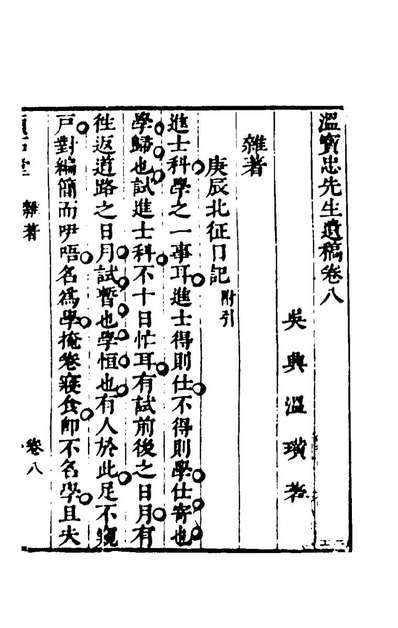 溫寶忠先生遺稿卷八
吳興溫璜著
雜著
庚辰北征日記附引
進士科學之一事耳進士得則仕不得則學仕寄也
學歸也試進士科不十日忙耳有試前後之日月有
徃返道路之日月試暫也學恒也有人於此足不窺
戸對編簡而咿唔名爲學掩卷寢食卽不名學且夫
雜著
卷八